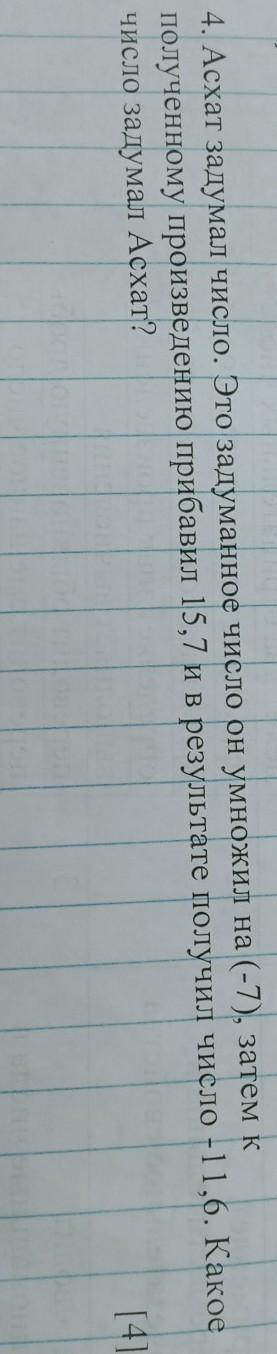 4. Асхат задумал число. Это задуманное число он умножил на (-7), затем к
полученному произведению прибавил 15,7 и в результате получил число -11,6. Какое
число задумал Асхат?
[4]